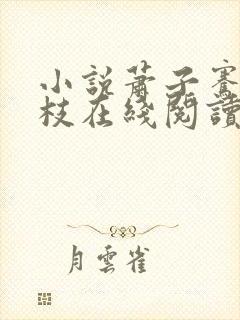 小說蕭子騫
枝在綫閱讀
月雲雀